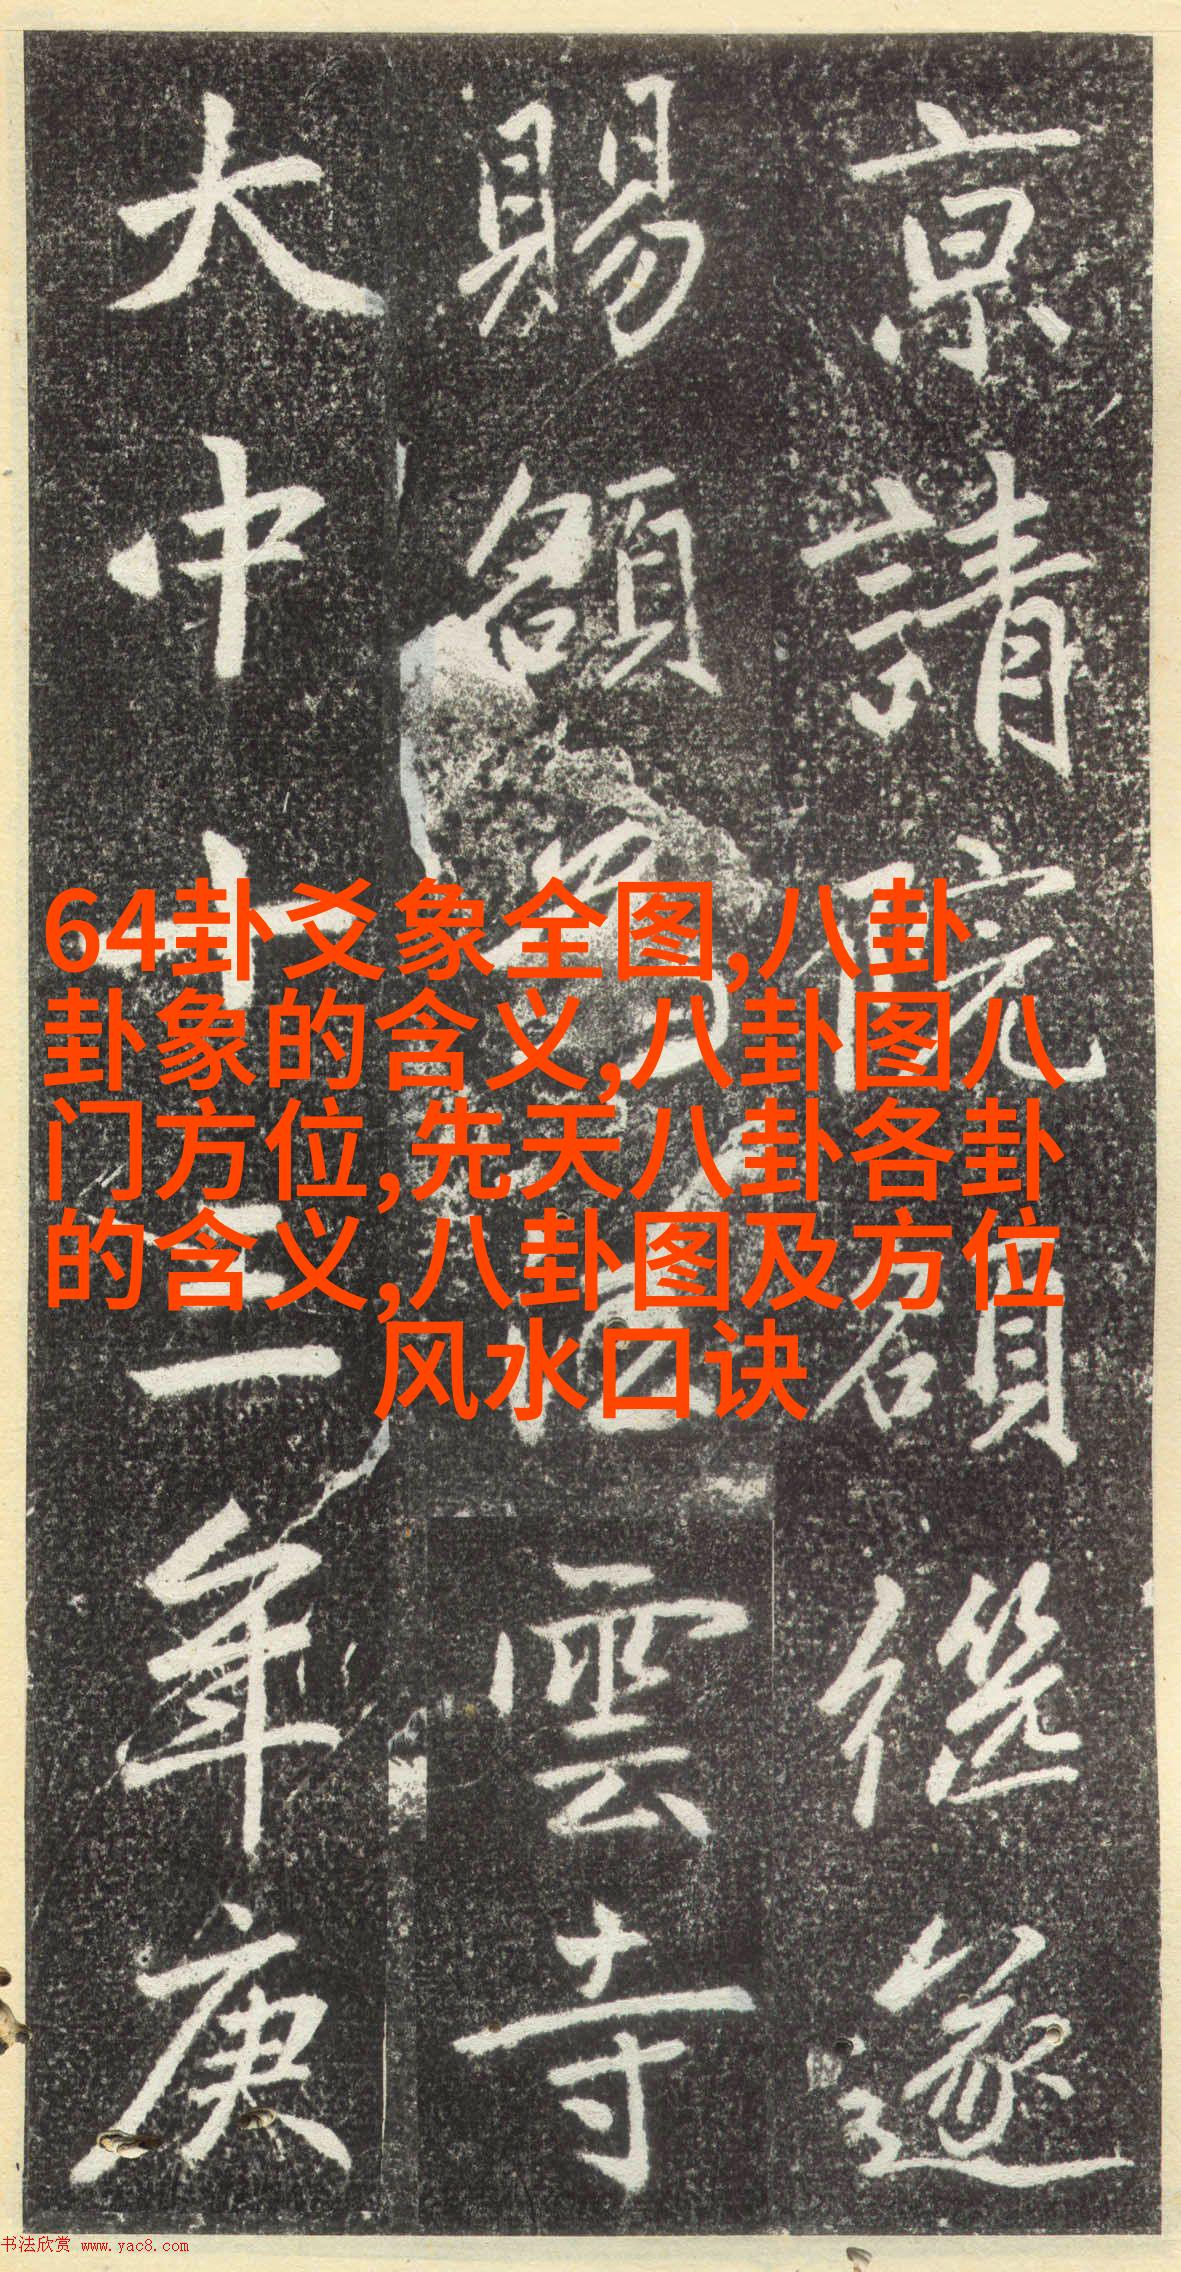 64卦爻象全图,八卦
卦象的含义,八卦图八
门方位,先天八卦各卦
的含义,八卦图及方位
风水口诀
京請院額遂
賜額雲寺
大中十三年庚
书法欣赏 www.yac8.com